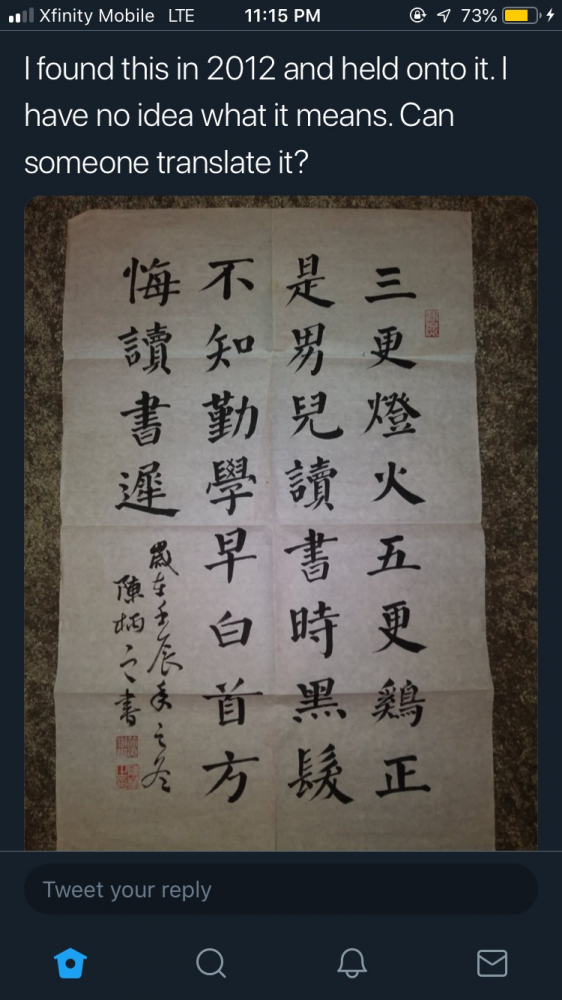 Xfinity Mobile LTE 11:15 PM 73%
I found this in 2012 and held onto it. I
have no idea what it means. Can
someone translate it?
三更燈火五更鷄正
是男兒讀書時黑髮
不知勤學早白首方
悔讀書遲
歲在壬辰季之冬
陳炳之書
Tweet your reply